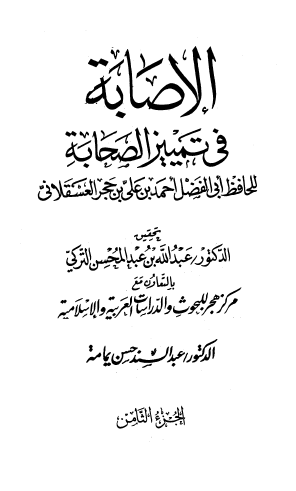 الإصابة
في تمييز الصحابة
للحافظ أبي الفضل أحمد بن علي بن حجر العسقلاني
تحقيق
الدكتور/ عبد الله بن عبد المحسن التركي
بالتعاون مع
مركز هجر للبحوث والدراسات العربية والإسلامية
الدكتور/ عبد السند حسن يمامة
الجزء الثامن